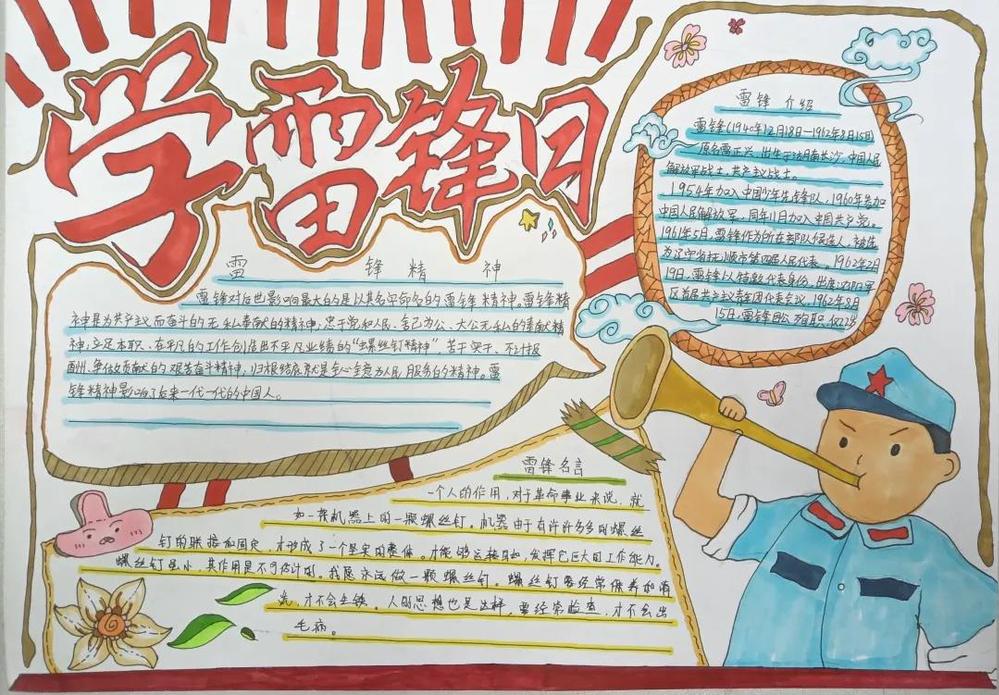 学雷锋日
雷锋精神
雷锋对后世影响最大的是以其名字命名的雷锋精神,雷锋精
神是为共产主义而奋斗的无私奉献的精神;忠于党和人民、舍己为公、大公无私的奉献精
神;立足本职、在平凡的工作创造出不平凡业绩的“螺丝钉精神”,苦干实干、不计报
酬、争做贡献的艰苦奋斗精神,归根结底就是全心全意为人民服务的精神。雷
锋精神影响了后来一代一代的中国人。
雷锋介绍
雷锋(1940年12月18日—1962年8月15日)
原名雷正兴,出生于湖南长沙,中国人民
解放军战士,共产主义战士。
1954年加入中国少年先锋队,1960年参加
中国人民解放军,同年11月加入中国共产党。
1961年5月,雷锋作为所在部队候选人,被选
为辽宁省抚顺市第四届人民代表。1962年2月
19日,雷锋以特邀代表身份,出席沈阳军
区首届共产主义青年团代表会议,1962年8月
15日,雷锋因公殉职,仅22岁
雷锋名言
一个人的作用,对于革命事业来说,就
如一架机器上的一颗螺丝钉。机器由于有许许多多的螺丝
钉的联接和固定,才形成了一个坚实的整体,才能够运转自如,发挥它巨大的工作能力。
螺丝钉虽小,其作用是不可估计的,我愿永远做一颗螺丝钉。螺丝钉要经常保养和清
洗,才不会生锈。人的思想也是这样,要经常检查,才不会出
毛病。